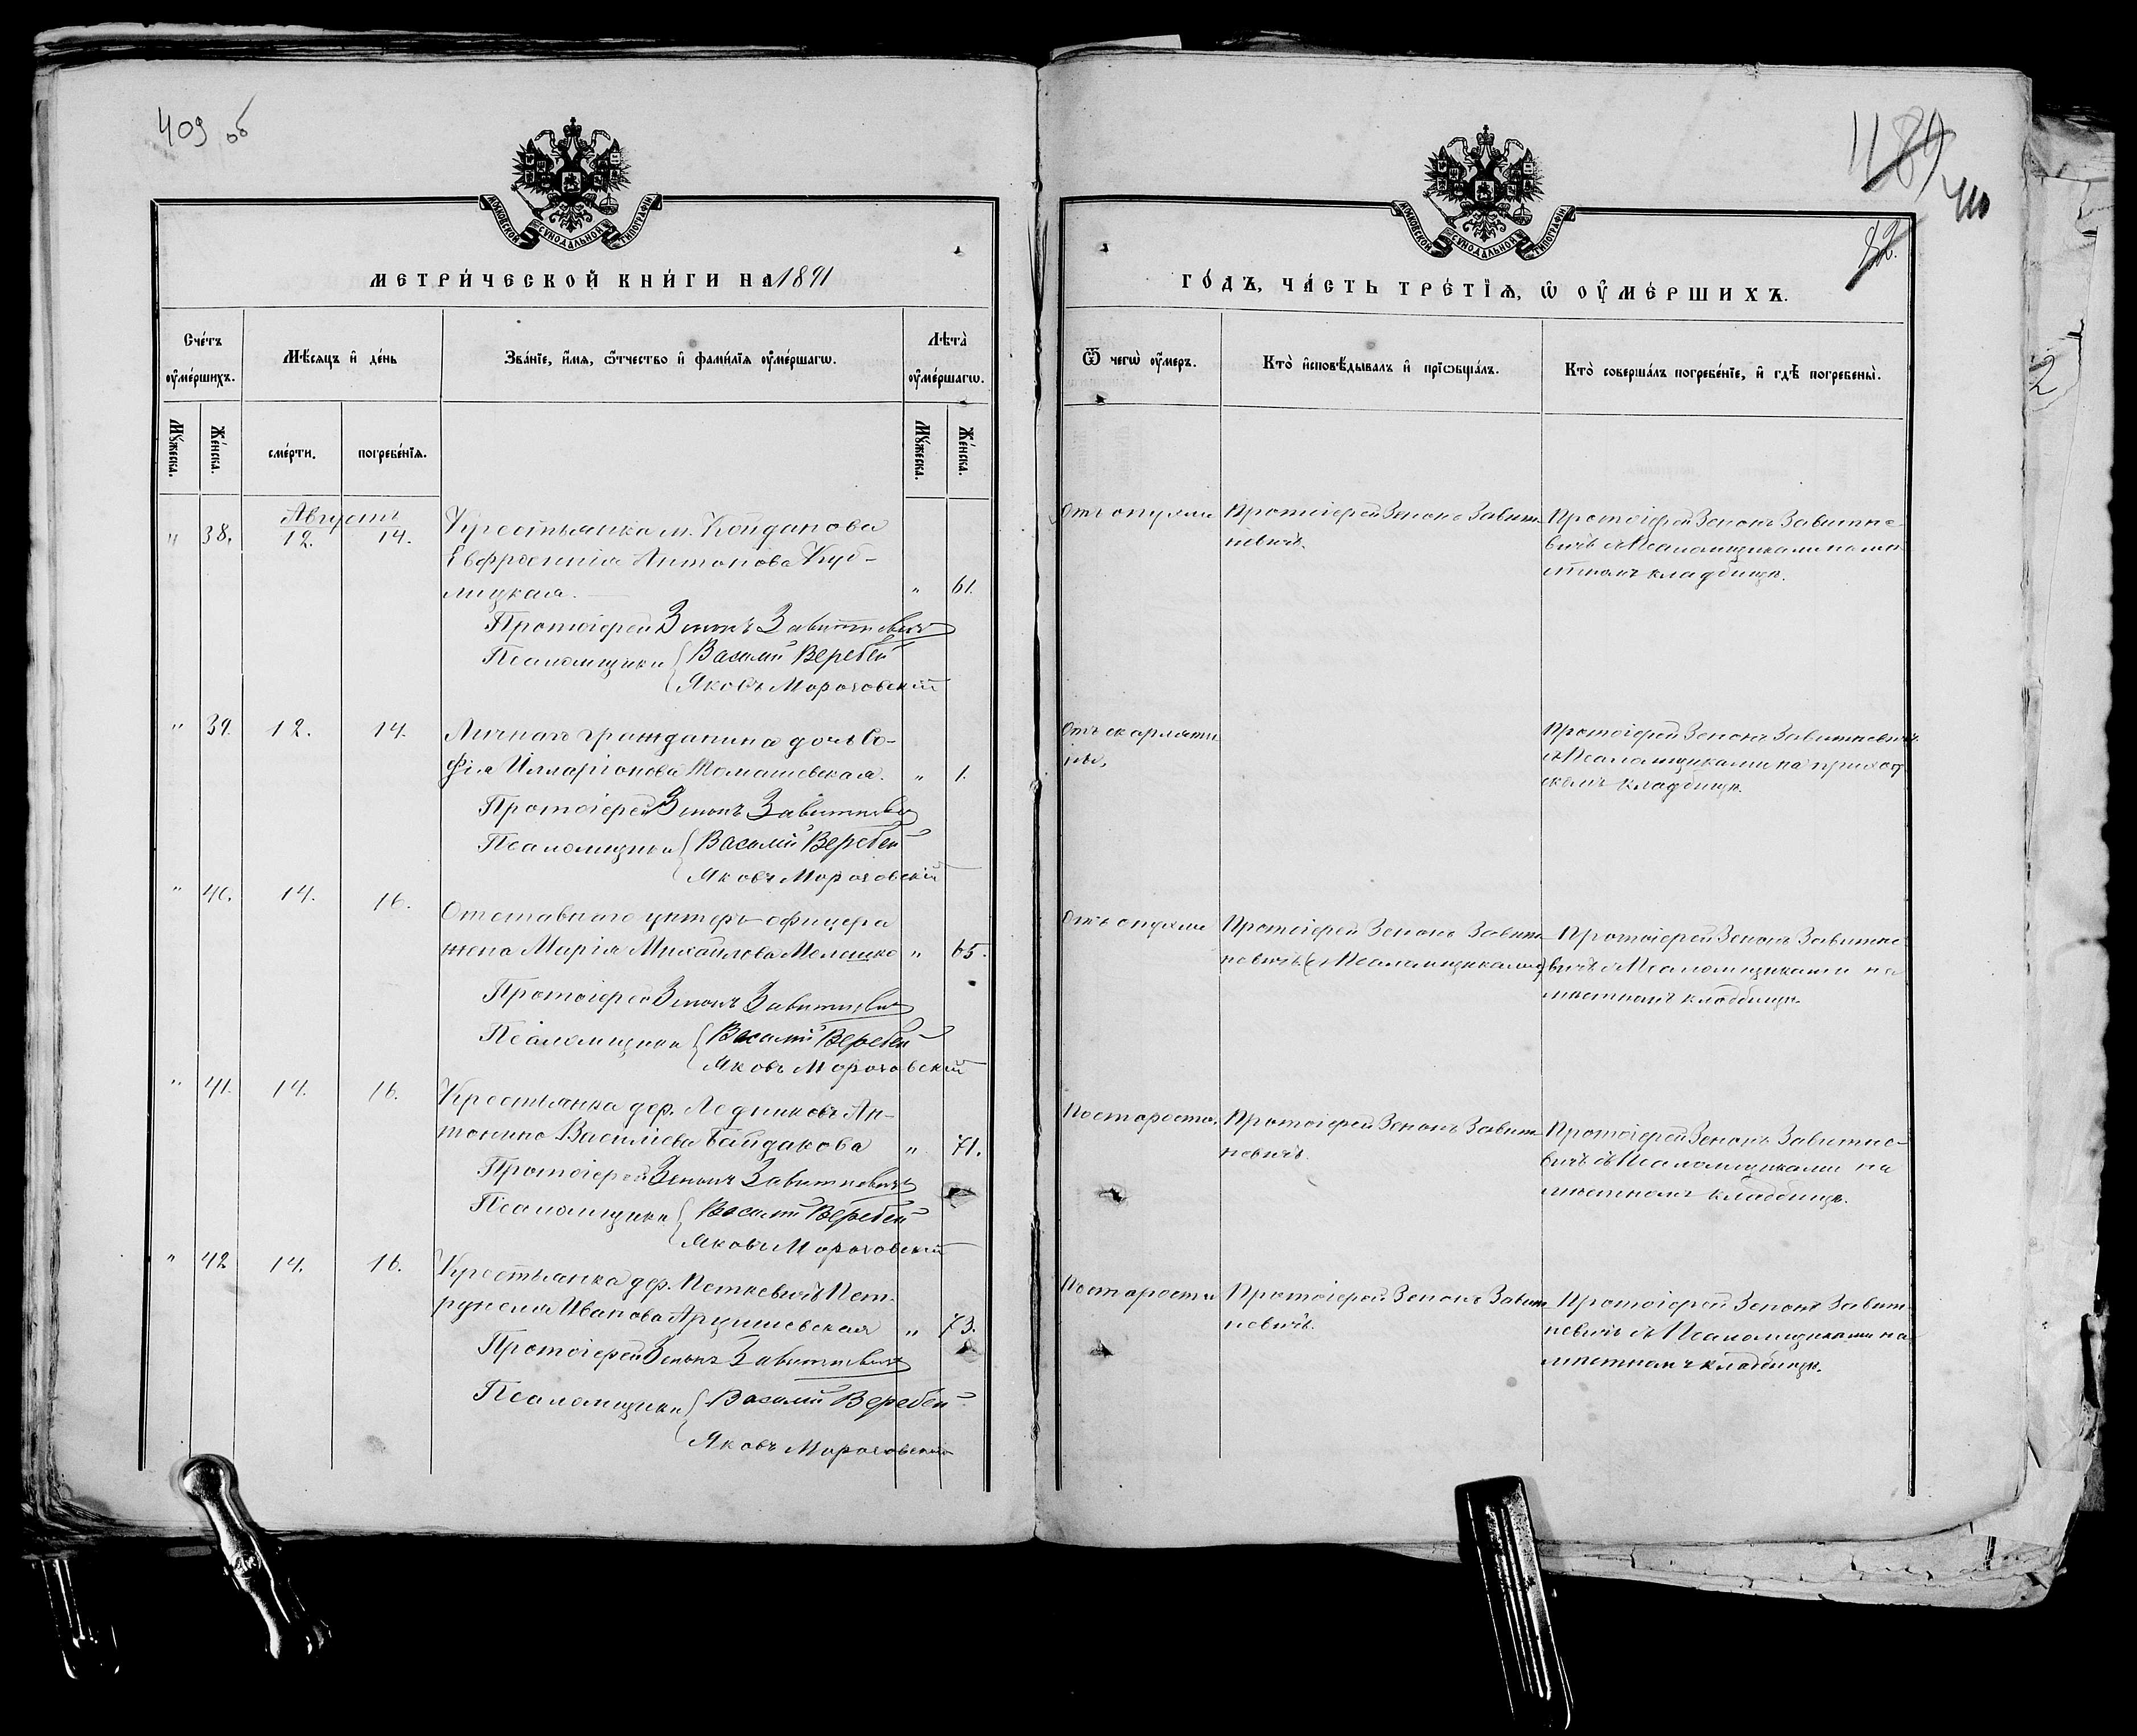 409 об
МОСКОВСКОЙ СѴНОДАЛЬНОЙ ТИПОГРАФІИ
МЕТРИ́ЧЕСКОЙ КНИ́ГИ НА 1891
Сче́тъ оу҆ме́ршихъ.
Мѣ́сяцъ и҆ де́нь
Зва́нїе, и҆́мя, ѻ҆́тчество и҆ фами́лїя оу҆ме́ршагѡ.
Лѣта̀ оу҆ме́ршагѡ.
Мꙋ́жеска.
Же́нска.
сме́рти.
погребе́нїя.
Мꙋ́жеска.
Же́нска.
Августъ
" 38. 12. 14. Крестьянка м. Койданова
Евфросинія Антонова Куб-
лицкая. " 61.
Протоіерей Зенонъ Завитневичъ
Псаломщики Василій Веребей
Яковъ Мороховскій
" 39. 12. 14. Личнаго гражданина дочь Со-
фія Илларіонова Томашевская. " 1.
Протоіерей Зенонъ Завитневичъ
Псаломщики Василій Веребей
Яковъ Мороховскій
" 40. 14. 16. Отставнаго унтеръ-офицера
жена Марія Михайлова Мелешко " 65.
Протоіерей Зенонъ Завитневичъ
Псаломщики Василій Веребей
Яковъ Мороховскій
" 41. 14. 16. Крестьянка дер. Ледниковъ Ан-
тонина Василіева Байдакова " 71.
Протоіерей Зенонъ Завитневичъ
Псаломщики Василій Веребей
Яковъ Мороховскій
" 42 14. 16. Крестьянка дер. Петкевичъ Пет-
рунеля Иванова Арцишевская " 73.
Протоіерей Зенонъ Завитневичъ
Псаломщики Василій Веребей
Яковъ Мороховскій
1189
410
МОСКОВСКОЙ СѴНОДАЛЬНОЙ ТИПОГРАФІИ
ГО́ДЪ, ЧА́СТЬ ТРЕ́ТЇѦ, Ѡ҆ ОУ҆МЕ́РШИХЪ.
Ѿ чегѡ̀ оу҆́меръ.
Кто̀ и҆сповѣ́дывалъ и҆ прїѡбща́лъ.
Кто̀ соверша́лъ погребе́нїе, и҆ гдѣ̀ погребены̀.
2
Отъ опухли
Протоіерей Зенонъ Завит-
невичъ.
Протоіерей Зенонъ Завитне-
вичъ съ Псаломщиками на мѣ-
стномъ кладбищѣ.
Отъ скарлати-
ны,
Протоіерей Зенонъ Завитневичъ
съ Псаломщиками на приход-
скомъ кладбищѣ.
Отъ опухли
Протоіерей Зенонъ Завит-
невичъ (съ Псаломщиками)
Протоіерей Зенонъ Завитне-
вичъ съ Псаломщиками на
мѣстномъ кладбищѣ.
По старости.
Протоіерей Зенонъ Завит-
невичъ.
Протоіерей Зенонъ Завитне-
вичъ съ Псаломщиками на
мѣстномъ кладбищѣ.
По старости
Протоіерей Зенонъ Завит-
невичъ.
Протоіерей Зенонъ Завит-
невичъ съ Псаломщиками на
мѣстномъ кладбищѣ.